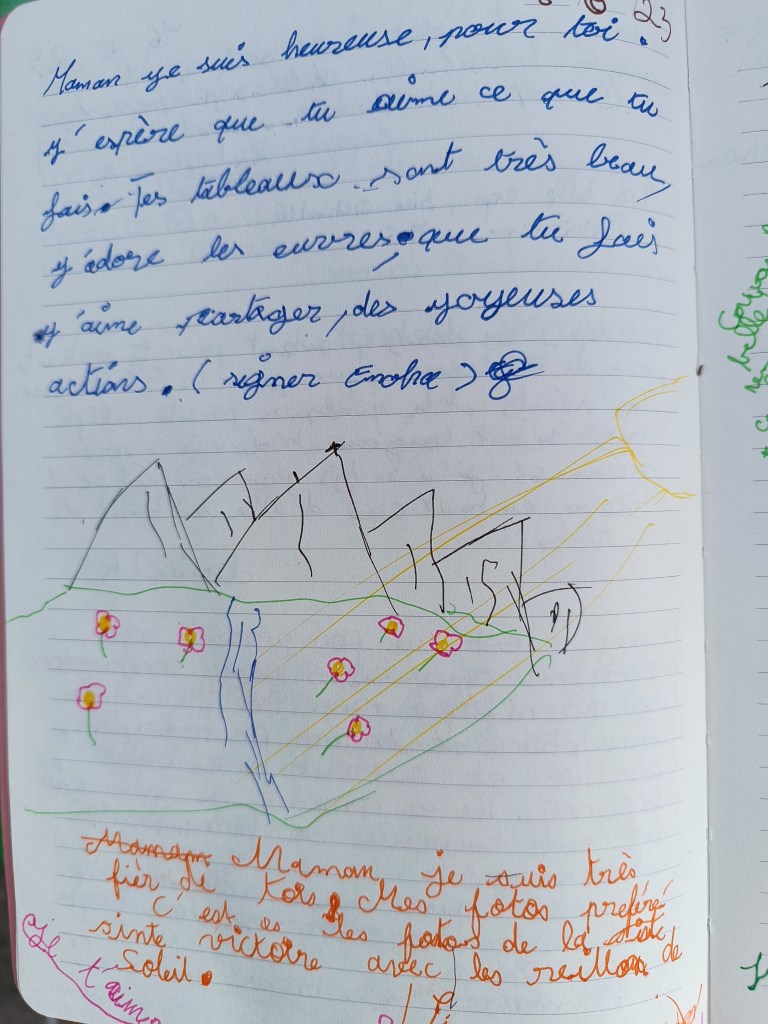 23
Maman je suis heureuse, pour toi.
j'espère que tu aime ce que tu
fais. Tes tableaux sont très beau,
j'adore les euvres, que tu fais
j'aime partager, des joyeuses
actions. (signer
Maman, je suis très
fièr de toi. Mes fotos préféré
c'est les fotos de la
sinte victoire avec les reillons de
Soleil.
Je t'aime